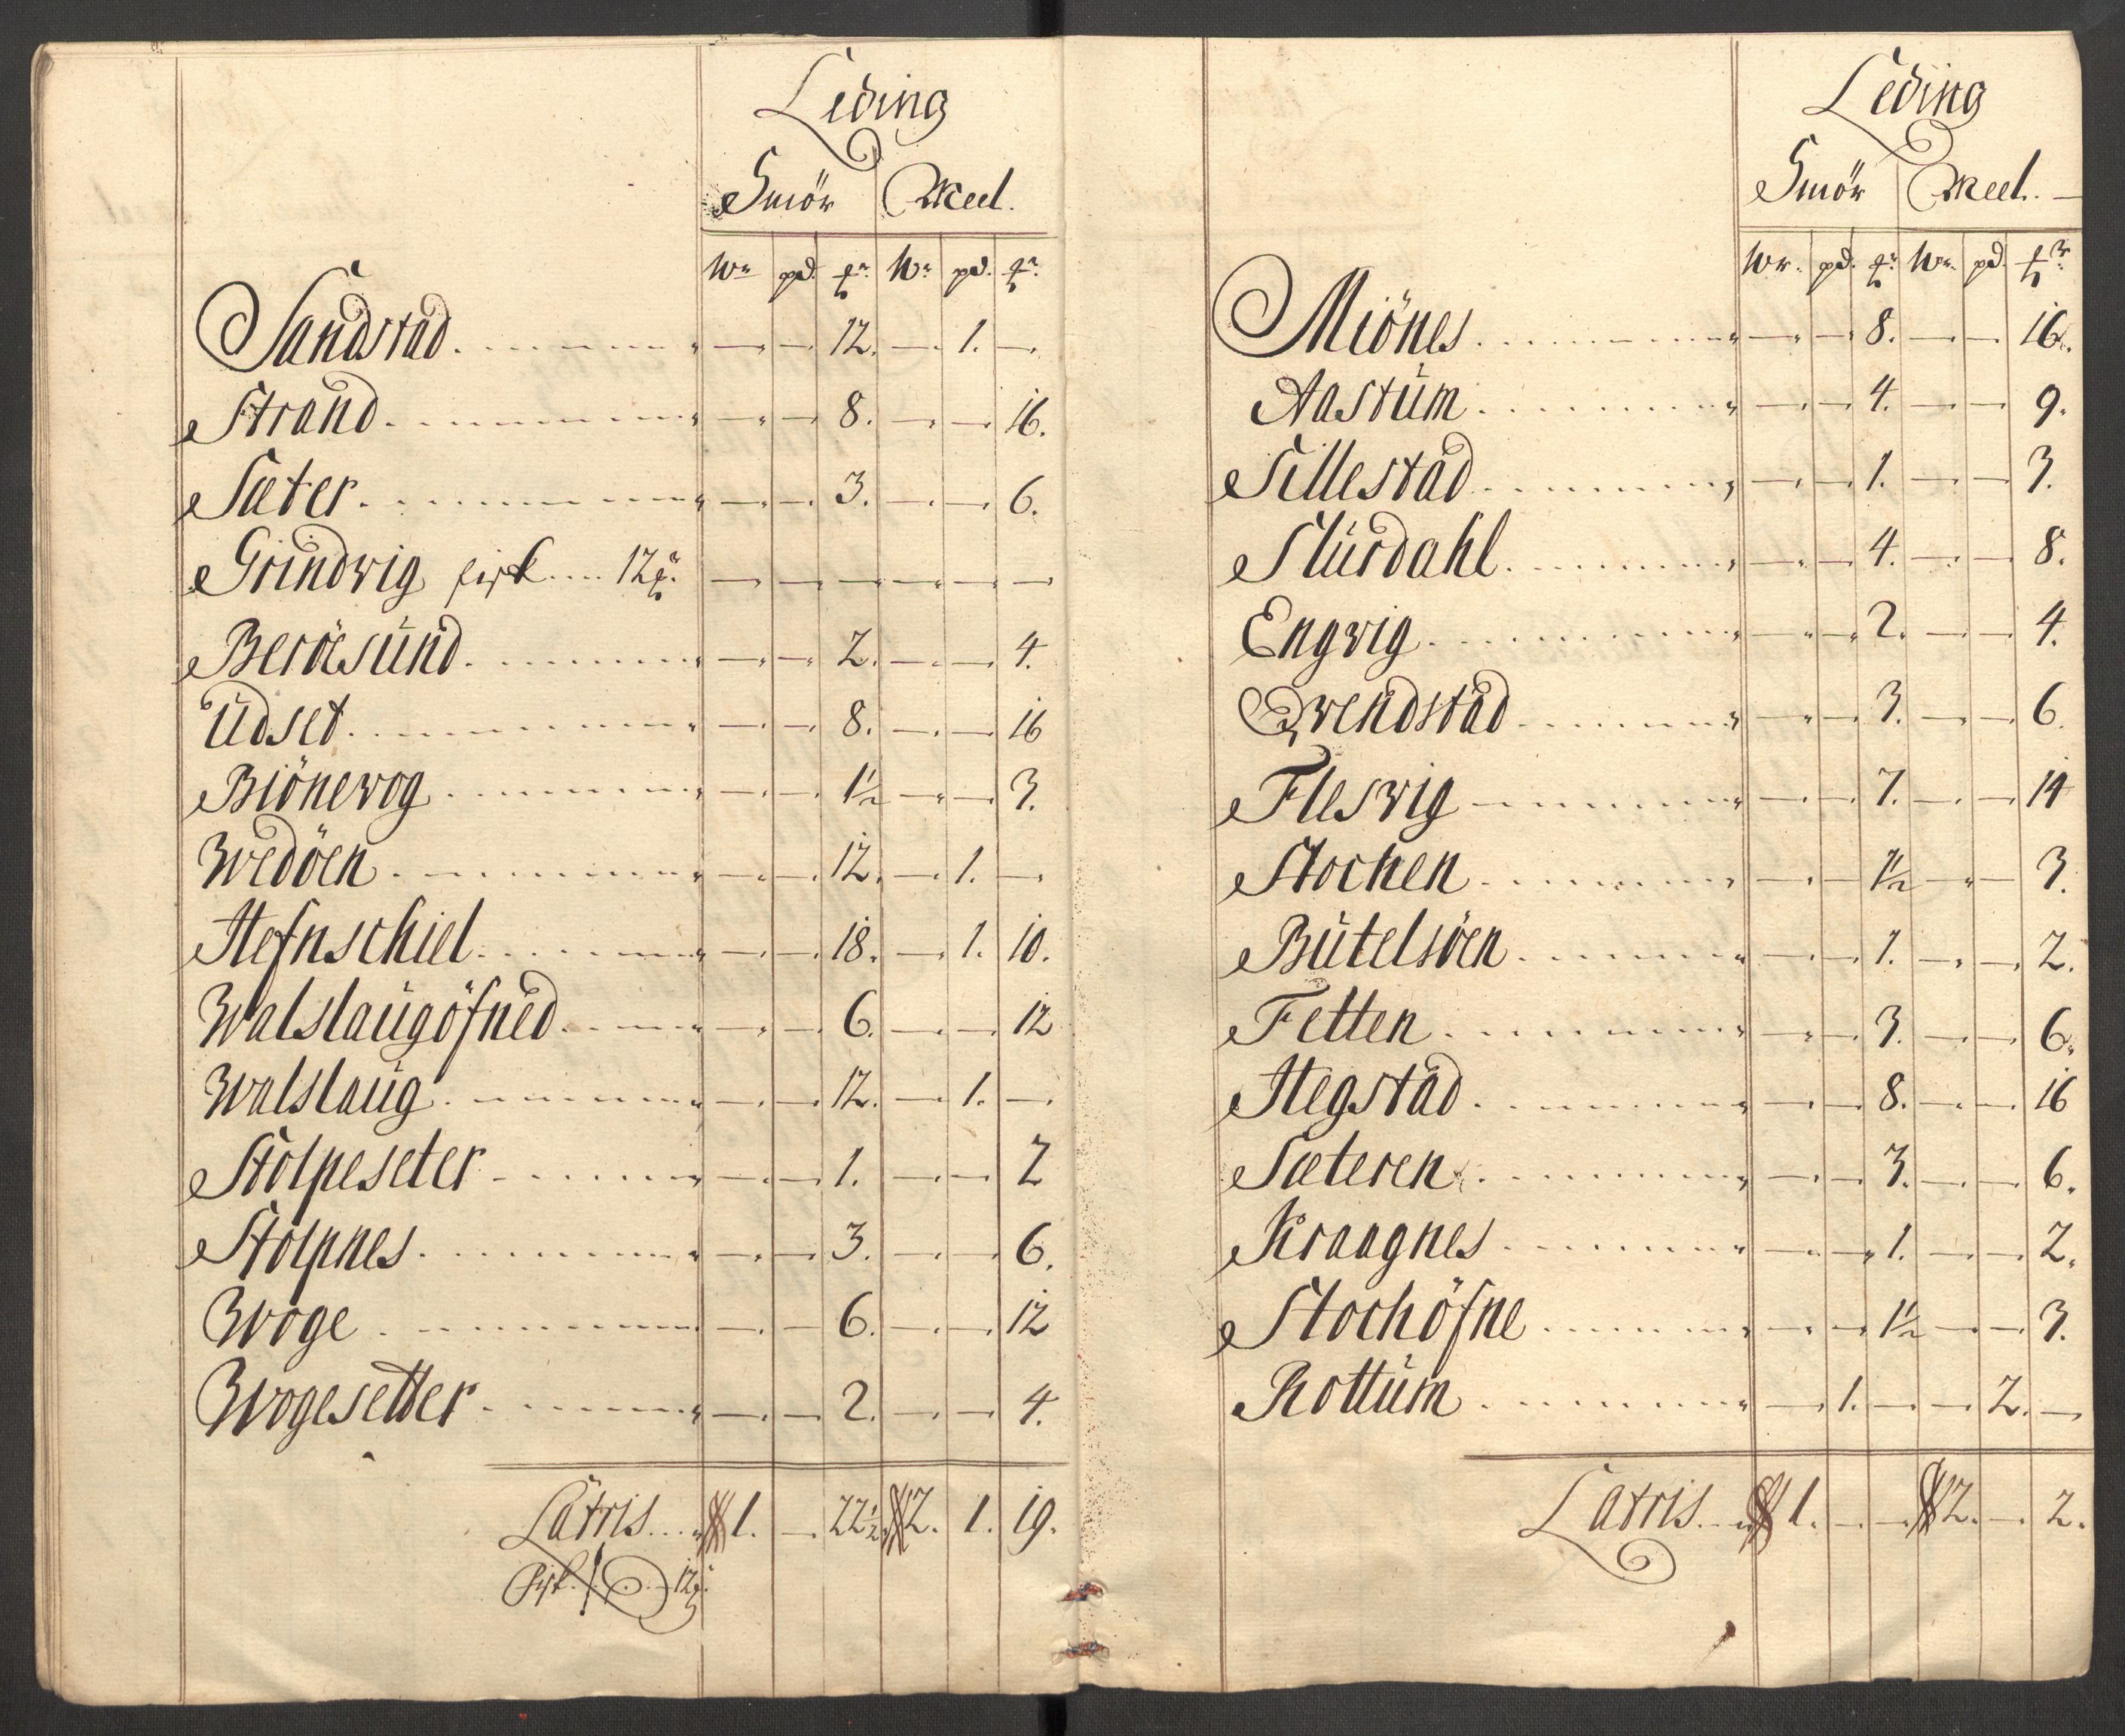 Leding
Smör Meel.
Wr pd. ℔r. Wr pd. ℔r.
Sandstad. — — 12. — 1. —
Strand. — — 8. — — 16.
Sæter. — — 3. — — 6.
Grindvig fisk 12 ℔r. — — — — — —
Beröesund. — — 2. — — 4.
Udset. — — 8. — — 16
Biönevog — — 1½ — — 3.
Wedöen. — — 12. — 1. —
Hefnschiel. — — 18. — 1. 10.
Walslaugöfned. — — 6. — — 12
Walslaug. — — 12. — 1. —
Stolpeseter — — 1. — — 2
Stolpnes. — — 3. — — 6.
Woge — — 6. — — 12
Wogesetter — — 2. — — 4.
Latris 1. — 22½ 2. 1. 19.
Fisk 12 ℔r.
Leding
Smör Meel.
Wr. pd. ℔r. Wr. pd. ℔r.
Miönes. — — 8. — — 16.
Aastum. — — 4. — — 9.
Sillestad — — 1. — — 3.
Slurdahl. — — 4. — — 8.
Engvig. — — 2. — — 4.
Qvendstad — — 3. — — 6.
Flesvig — — 7. — — 14
Stochen — — 1½ — — 3.
Butelsöen. — — 1. — — 2.
Fetten. — — 3. — — 6.
Hegstad. — — 8. — — 16
Sæteren. — — 3. — — 6.
Kraagnes. — — 1. — — 2.
Stochöfne — — 1½ — — 3.
Rottum — 1. — — 2. —
Latris. 1. — — 2. — 2.